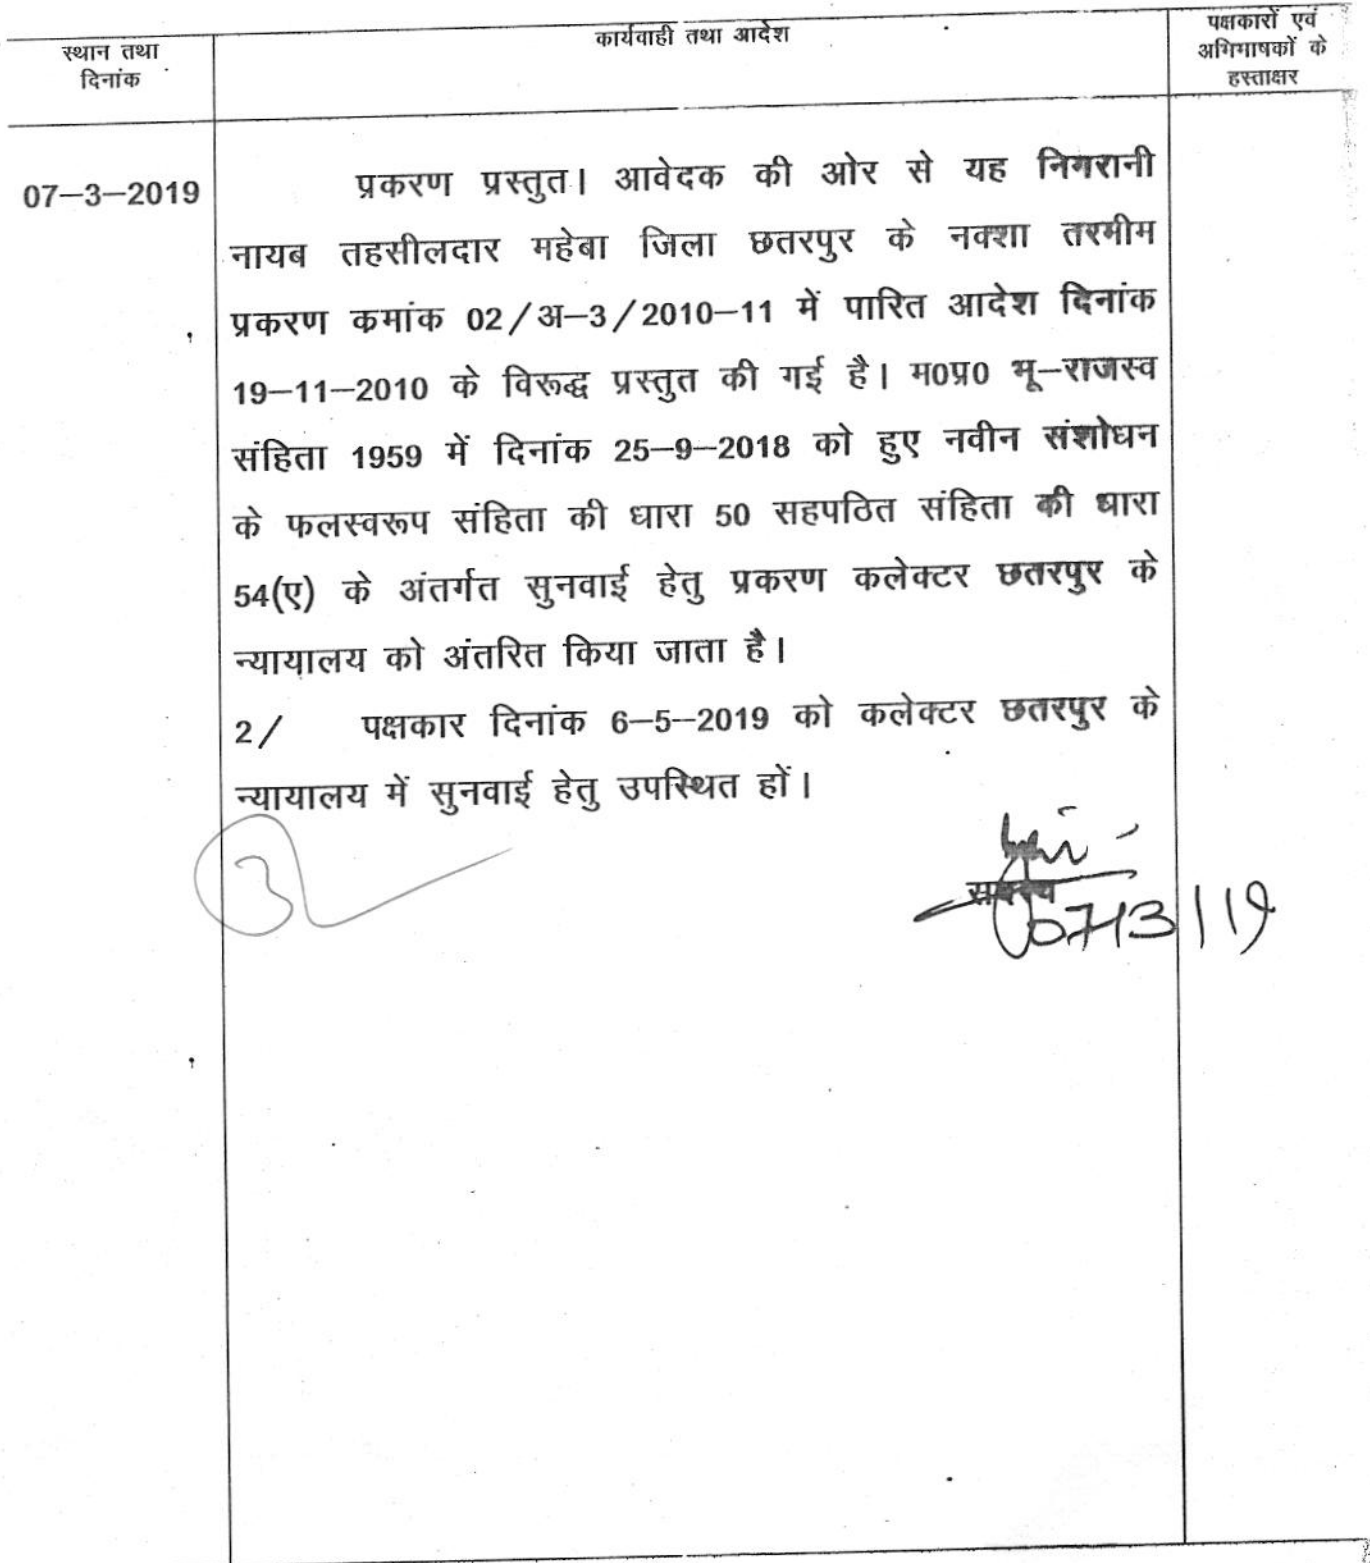 स्थान तथा
दिनांक
कार्यवाही तथा आदेश
पक्षकारों एवं
अभिभाषकों के
हस्ताक्षर
07-3-2019
प्रकरण प्रस्तुत। आवेदक की ओर से यह निगरानी
नायब तहसीलदार महेबा जिला छतरपुर के नक्शा तरमीम
प्रकरण कमांक 02/अ-3/2010-11 में पारित आदेश दिनांक
19-11-2010 के विरूद्ध प्रस्तुत की गई है। म0प्र0 भू-राजस्व
संहिता 1959 में दिनांक 25-9-2018 को हुए नवीन संशोधन
के फलस्वरूप संहिता की धारा 50 सहपठित संहिता की धारा
54(ए) के अंतर्गत सुनवाई हेतु प्रकरण कलेक्टर छतरपुर के
न्यायालय को अंतरित किया जाता है।
2/ पक्षकार दिनांक 6-5-2019 को कलेक्टर छतरपुर के
न्यायालय में सुनवाई हेतु उपस्थित हों।
सदस्य
07/3/19